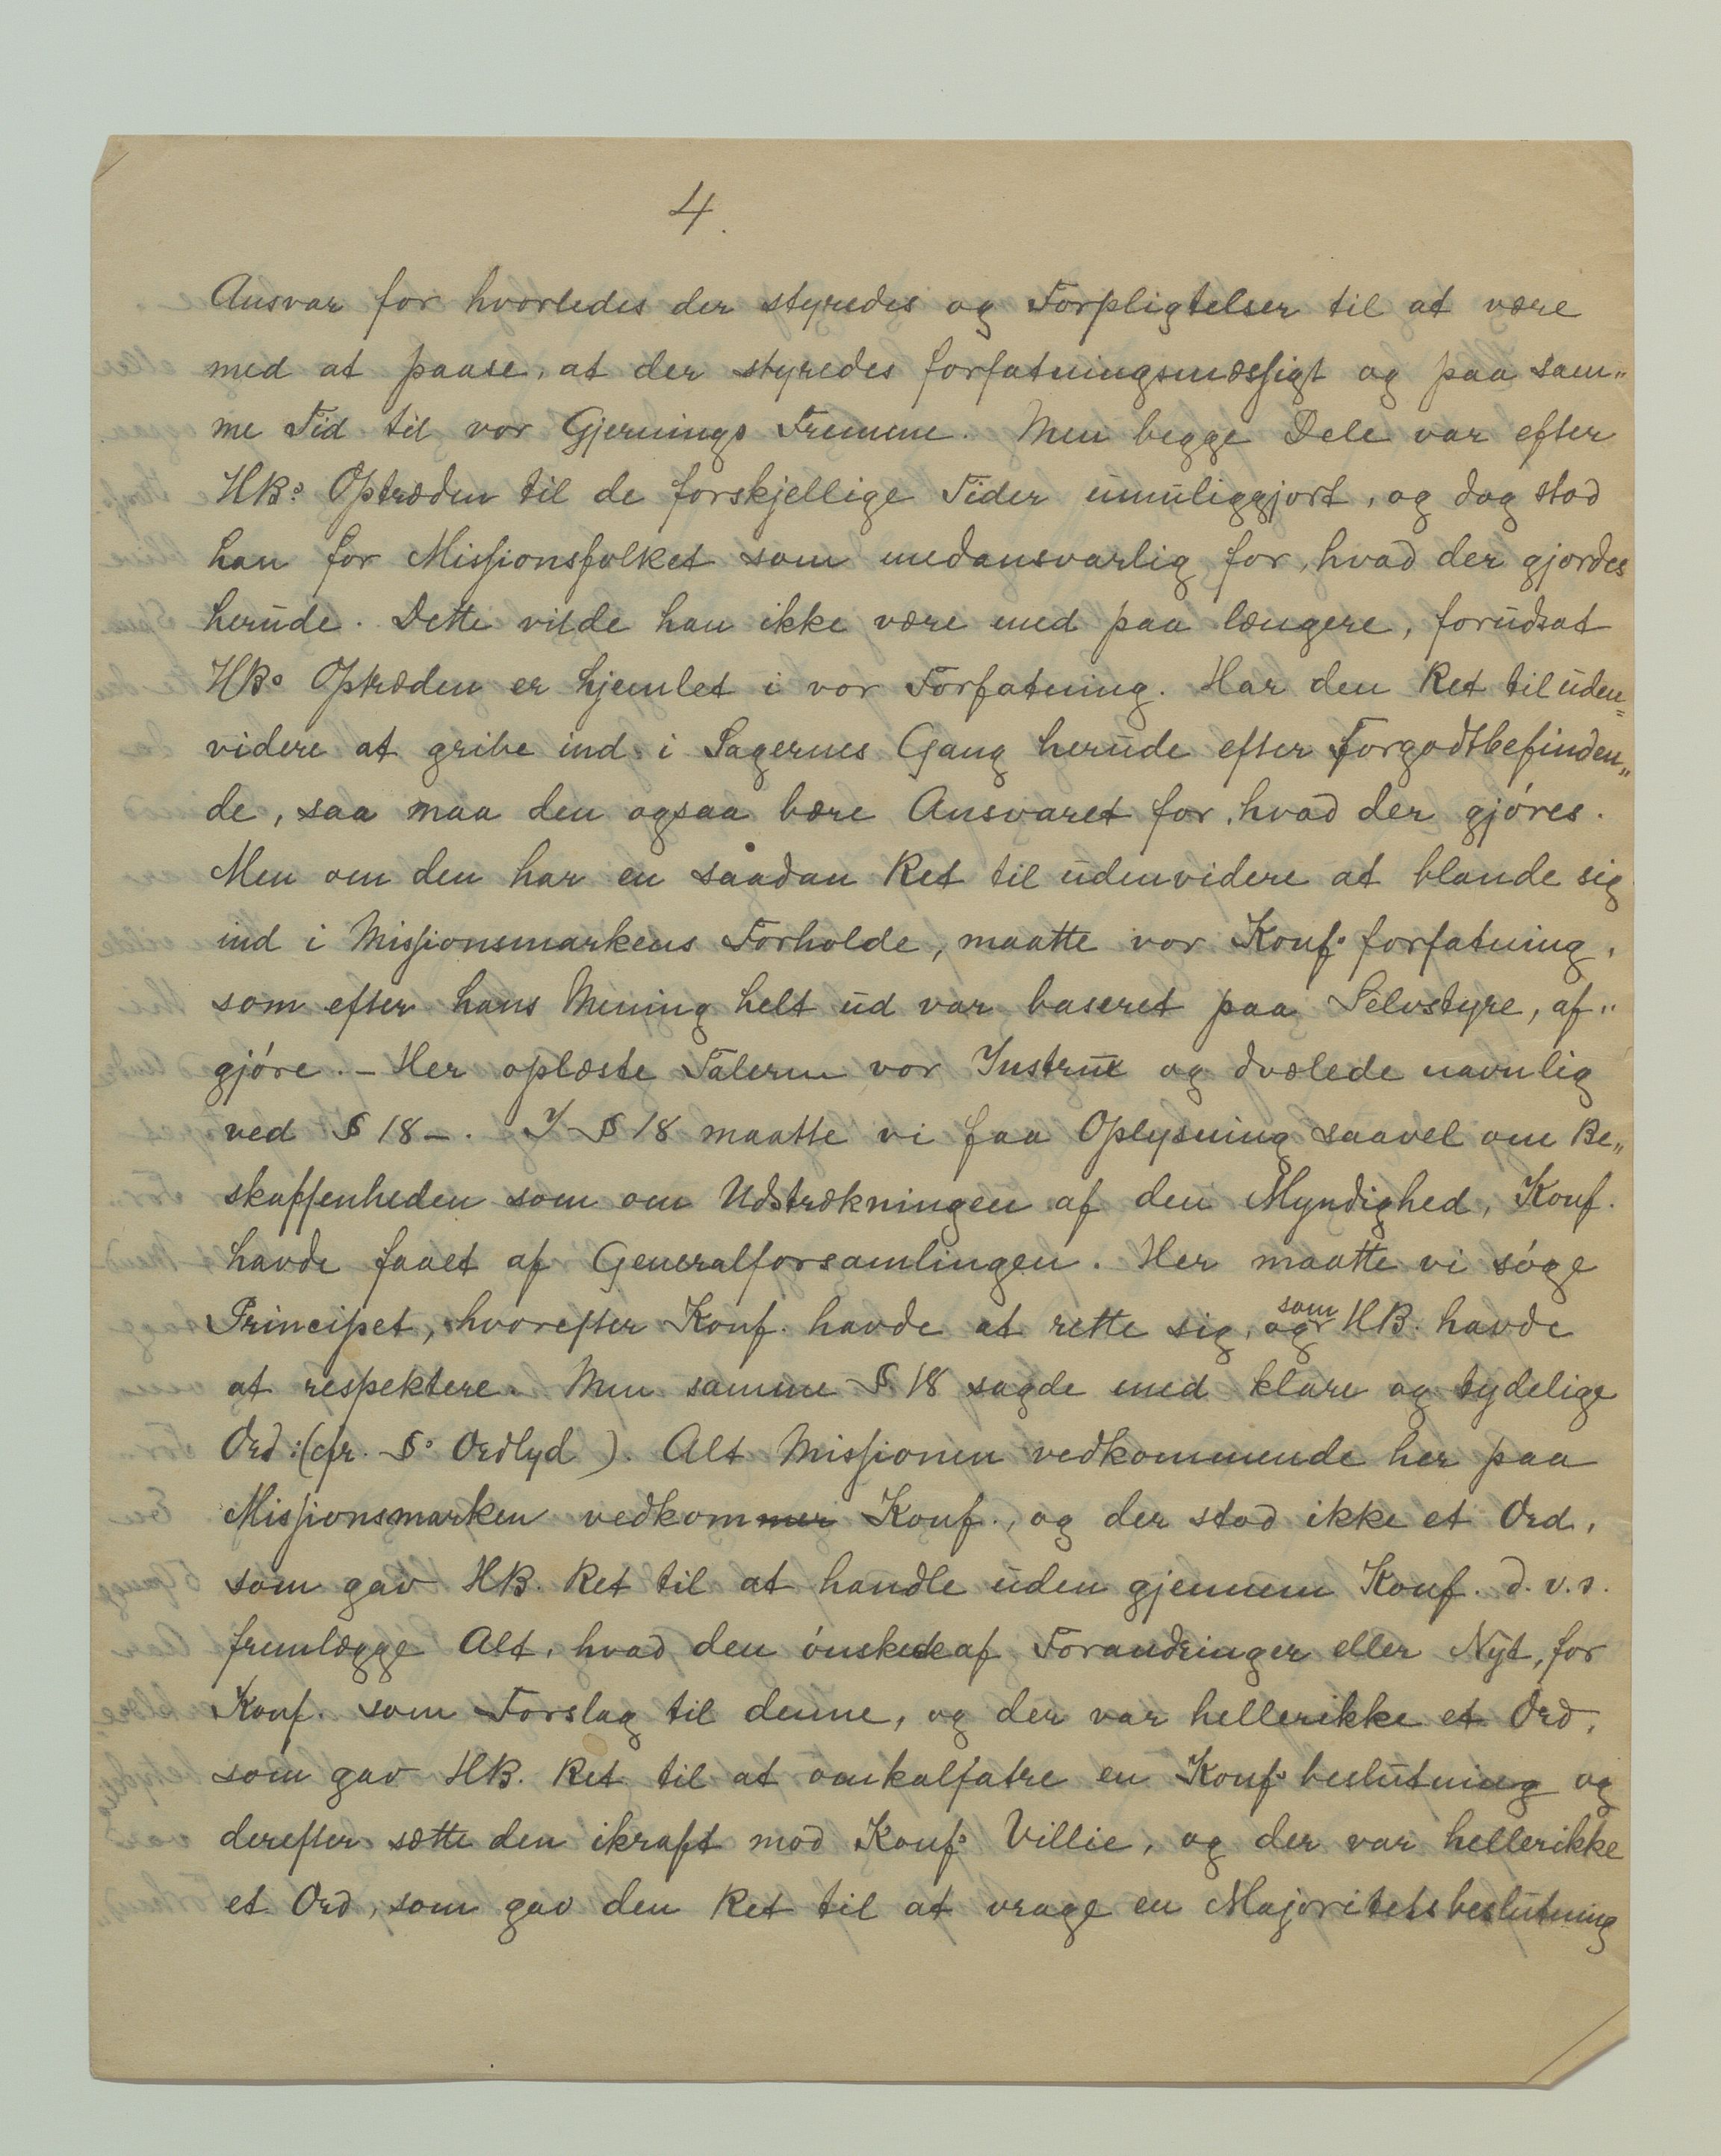 4.
Ansvar for hvorledes der styredes og Forpligtelser til at være
med at paase, at der styredes forfatningsmæssigt og paa sam„
me Tid til vor Gjernings Fremme. Men begge Dele var efter
HBs Optræden til de forskjellige Tider umuliggjort, og dog stod
han for Missionsfolket som medansvarlig for, hvad der gjordes
herude. Dette vilde han ikke være med paa længere, forudsat
HBs Optræden er hjemlet i vor Forfatning. Har den Ret til uden=
videre at gribe ind i Sagernes Gang herude efter Forgodtbefinden„
de, saa maa den ogsaa bære Ansvaret for, hvad der gjóres.
Men om den har en saadan Ret til udenvidere at blande sig
ind i Missionsmarkens Forholde, maatte vor Konfs forfatning,
som efter hans Mening helt ud var baseret paa Selvstyre, af„
gjóre. – Her oplæste Taleren vor Instrux og dvælede navnlig
ved § 18 –. I § 18 maatte vi faa Oplysning saavel om Be„
skaffenheden som om Udstrækningen af den Myndighed, Konf.
havde faaet af Generalforsamlingen. Her maatte vi sóge
Princippet, hvorefter Konf. havde at rette sig, og som HB. havde
at respektere. Men samme § 18 sagde med klare og tydelige
Ord: (cfr. §s Ordlyd). Alt Missionen vedkommende her paa
Missionsmarken vedkommer Konf., og der stod ikke et Ord,
som gav HB. Ret til at handle uden gjennem Konf. d.v.s.
fremlægge Alt, hvad den ónskede af Forandringer eller Nyt, for
Konf. som Forslag til denne, og der var hellerikke et Ord,
som gav HB. Ret til at omkalfatre en Konfs beslutning og
derefter sætte den ikraft mod Konfs Villie, og der var hellerikke
et Ord, som gav den Ret til at vrage en Majoritetsbeslutning